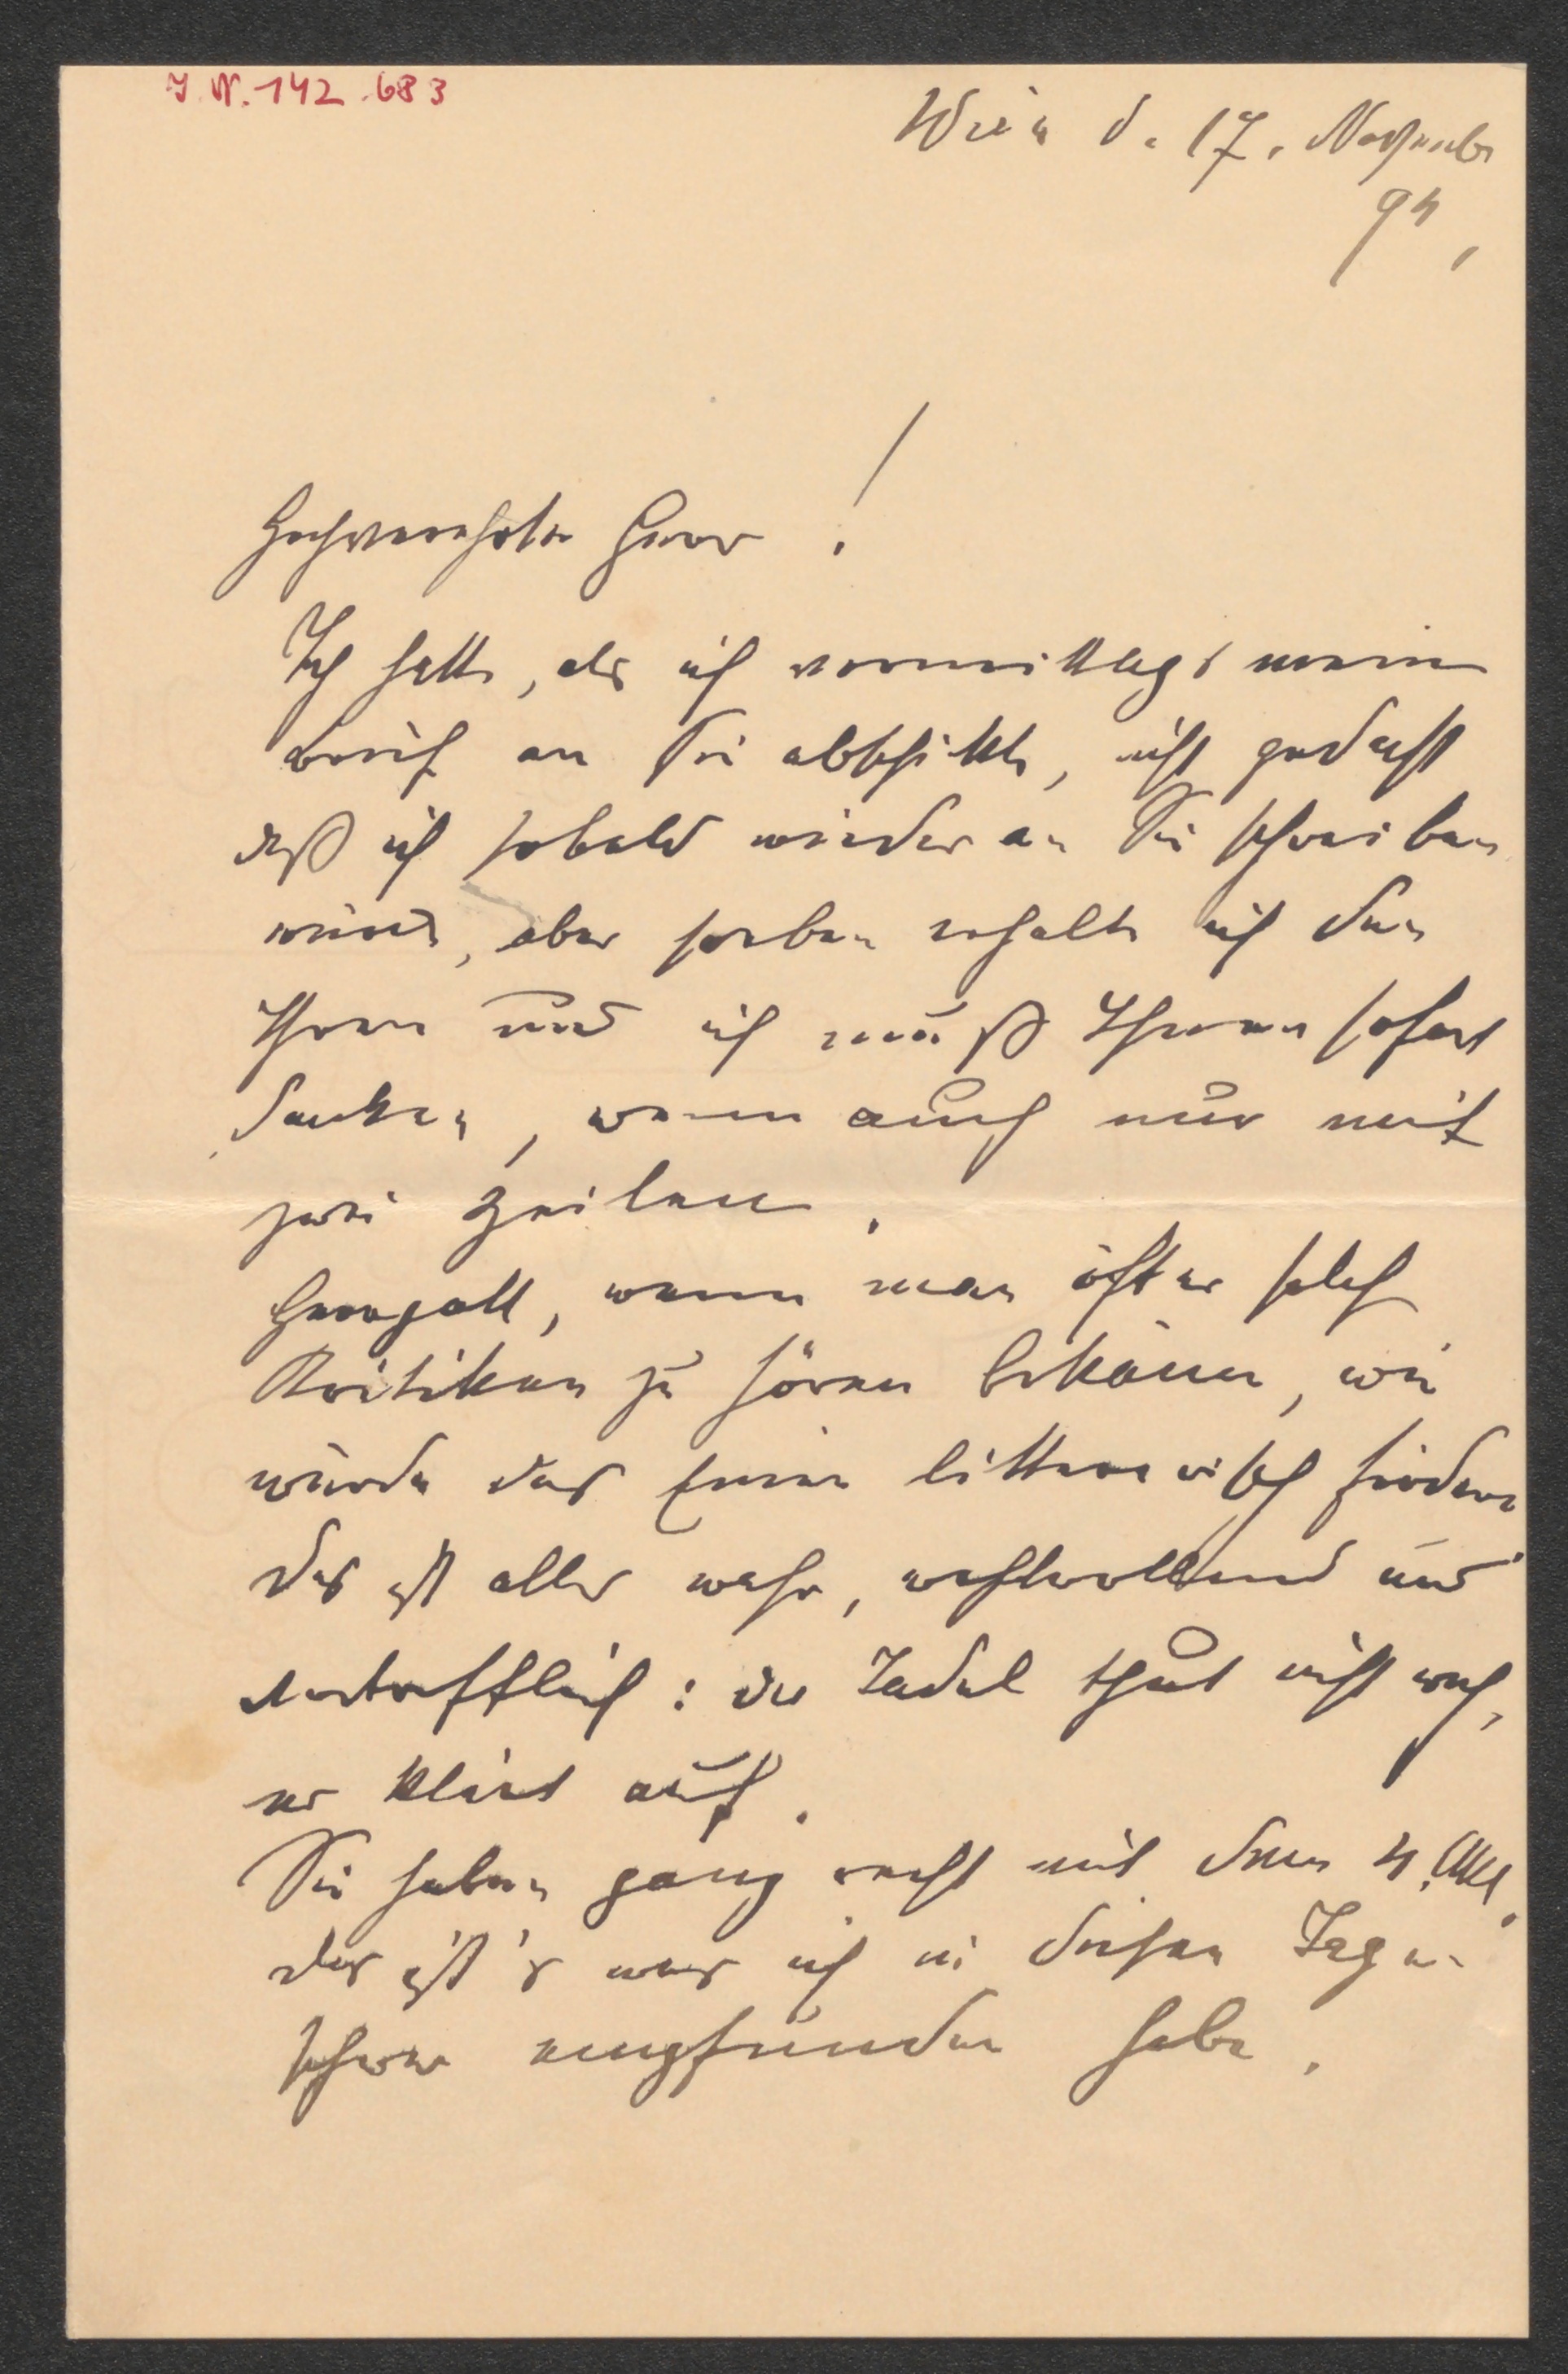 J. N. 142.683
Wien d. 17. November
94,
Hochverehrter Herr!
Ich hatte, als ich vormittags meinen
Brief an Sie abschickte, nicht gedacht
daß ich sobald wieder an Sie schreiben
würde, aber soeben erhalte ich den
Ihren und ich muß Ihnen sofort
danken, wenn auch nur mit
zwei Zeilen.
Herrgott, wenn man öfter solch
Kritiken zu hören bekäme, wie
würde das Einen litterarisch fördern
Das ist alles wahr, wohlwollend und
vortrefflich: der Tadel thut nicht weh,
er klärt auf.
Sie haben ganz recht mit dem 4. Akt
das ist's was ich in diesen Tagen
schwer empfunden habe.